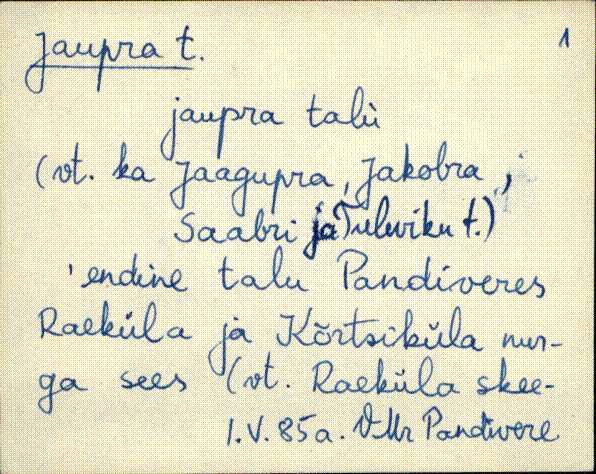 Jaupra t. 1
jaupra talù
(vt. ka Jaagupra, Jakobra,
Saabri ja Tuleviku t.)
'endine talu Pandiveres
Raeküla ja Kõrtsiküla nur-
ga sees (vt. Raeküla skee-
1.V.85a. VMr Pandivere